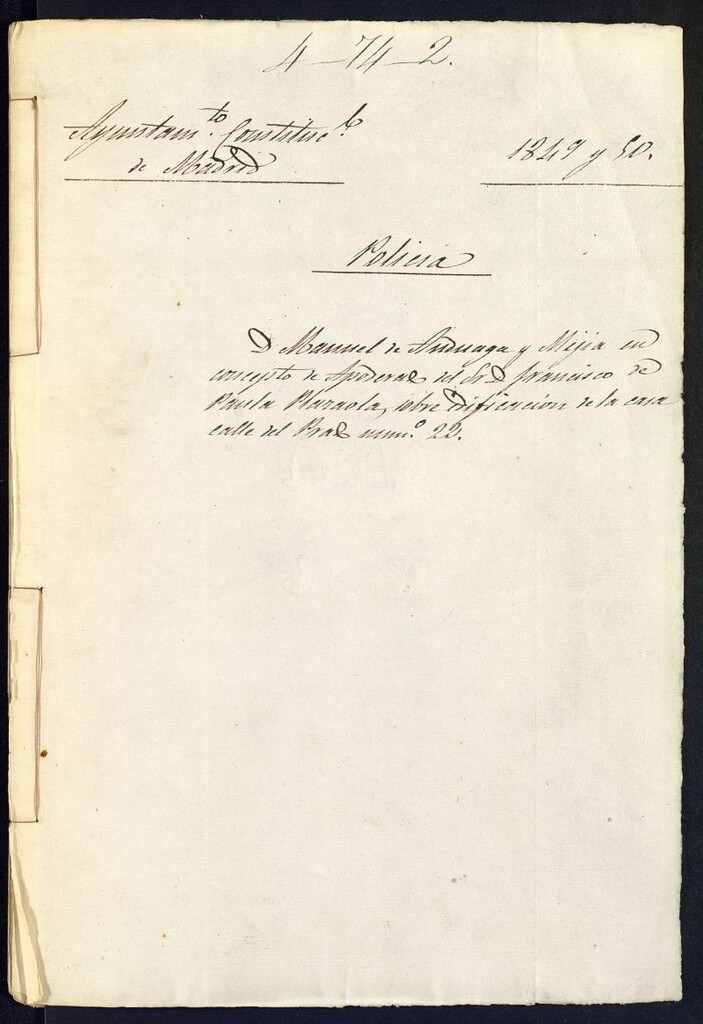 4-74-2.
Ayuntam.to Constituc.l
de Madrid
1849 y 50.
Policia
D Manuel de Anduaga y Mejia en
concepto de Apoderado del Sr. D Francisco de
Paula Plazaola, sobre edificacion de la casa
calle del Prado num.o 22.